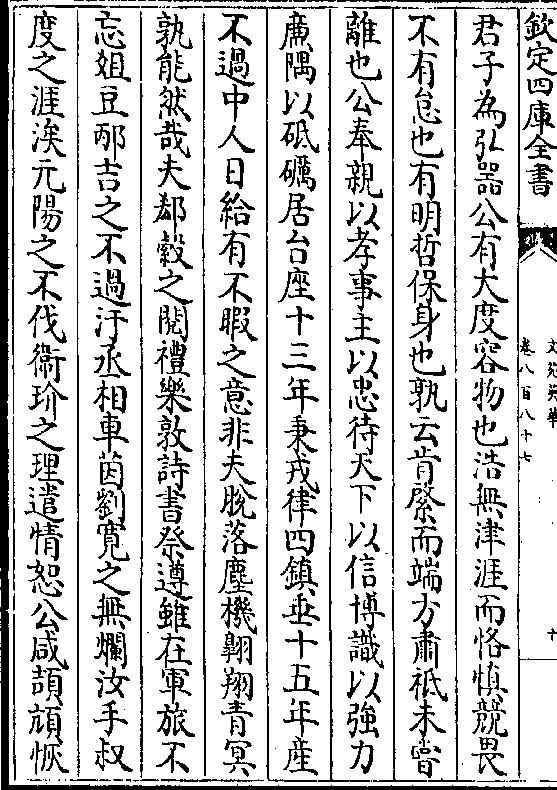 欽定四庫全書
文苑英華
卷八百八十七
十
君子為弘器公有大度容物也浩無津涯而恪慎競畏
不有怠也有明哲保身也孰云肯綮而端方肅祗未甞
離也公奉親以孝事主以忠待天下以信博識以強力
廉隅以砥礪居台座十三年秉戎律四鎮垂十五年産
不過中人日給有不暇之意非夫脫落塵機翺翔青冥
孰能然哉夫郄縠之閱禮樂敦詩書祭遵雖在軍旅不
忘俎豆邴吉之不過汙丞相車茵劉寛之無爛汝手叔
度之涯涘元陽之不伐衞玠之理遣情恕公咸頡頏恢